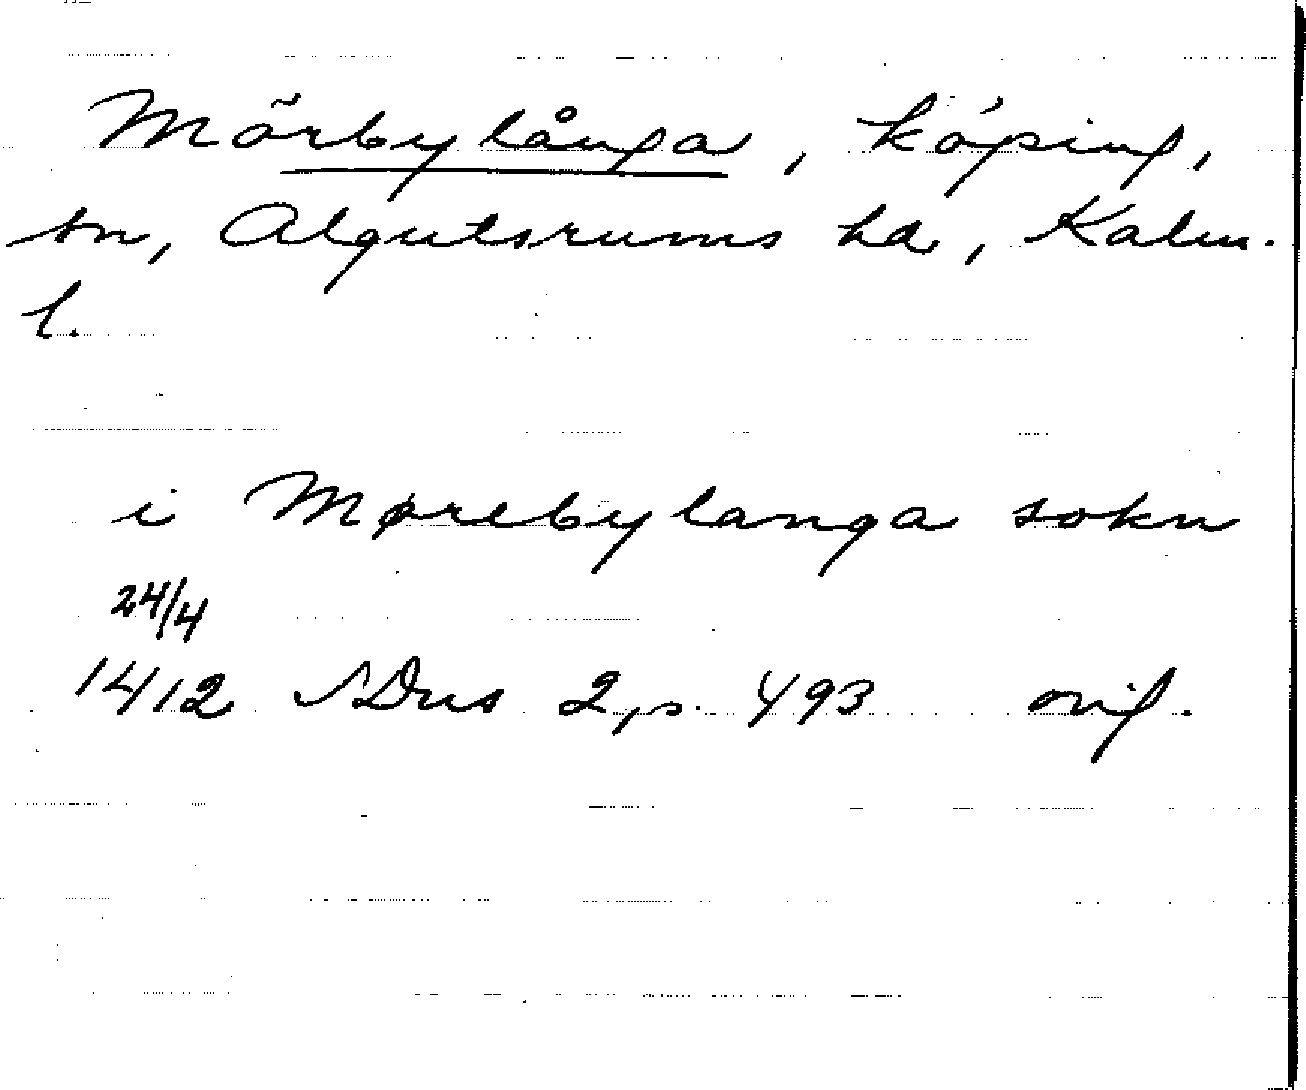 Mörbylånga, köping,
sn, Algutsrums hd, Kalm.
l.
i Mørebylanga sokn
24/4
1412 SDns 2, s. 493 orig.